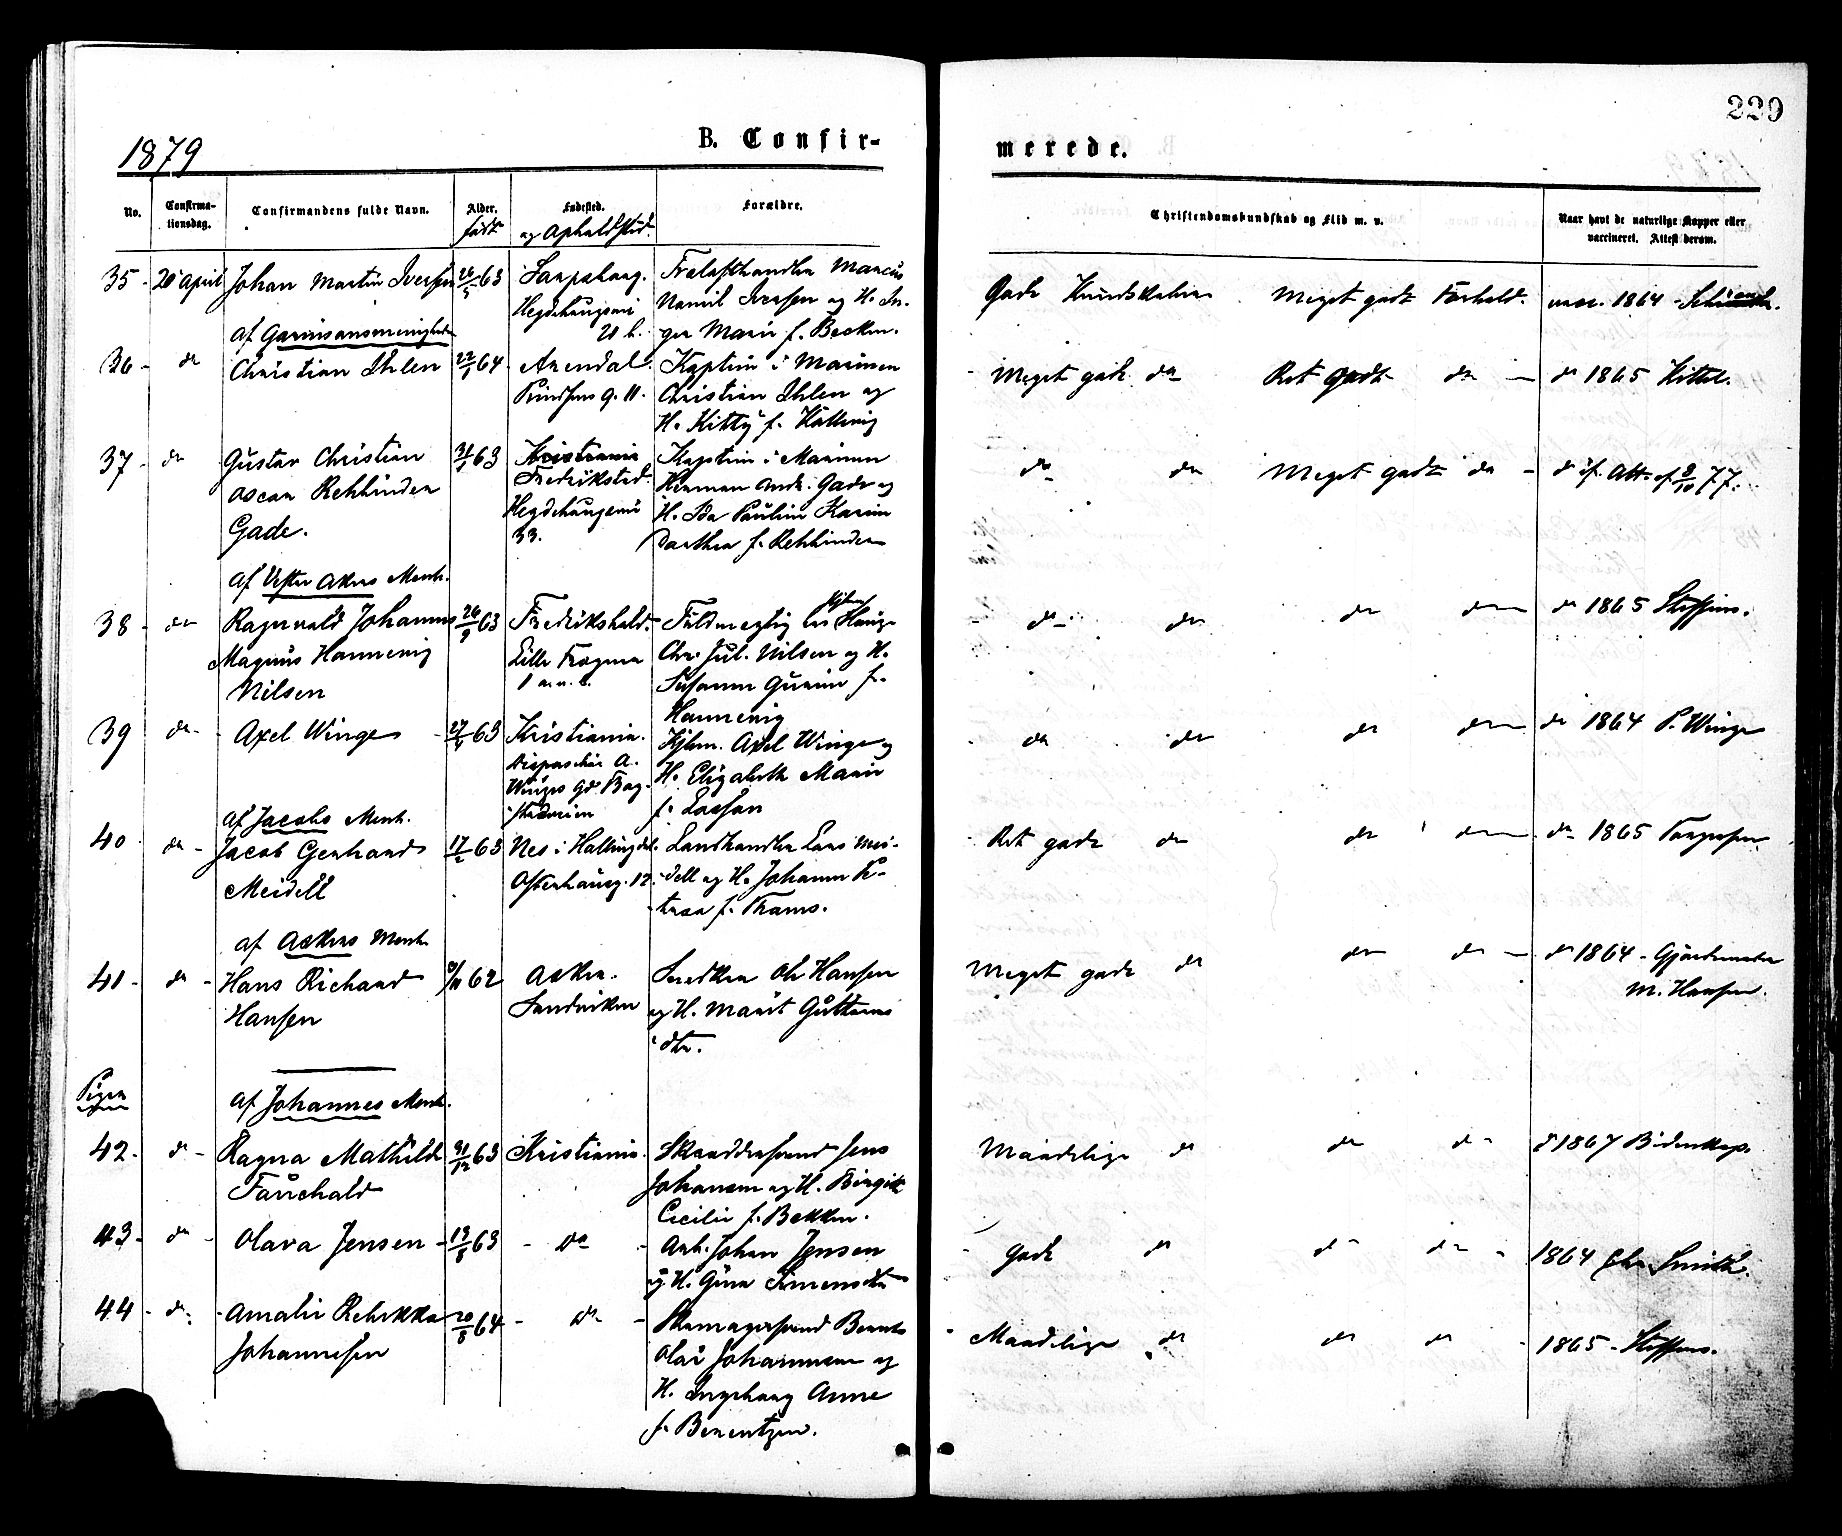 229
1879
B. Confir-
merede.
No.
Confirma-
tionsdag.
Confirmandens fulde Navn.
Alder.
født
Fødested.
og Opholdssted.
Forældre.
Christendomskundskab og Flid m. v.
Naar havt de naturlige Kopper eller
vaccineret. Attest derom.
35 - 20 April Johan Martin Iversen 63
Hegdehaugsvei
Marcus
Iversen og H. In-
ger Marie f. Becken.
Gode Kundskaber Meget godt Forhold. vacc. 1864
af Garnisonsmenigheden
36 - do Christian Ihlen 22/1 64 Arendal.
Kaptein i Marinen
Christian Ihlen og
H. Kitty f.
Meget gode do Ret godt do - do 1865 Kittel.
37 - do Gustav Christian
Oscar Rehbinder
Gade.
31/1 63 Kristiania
Fredrikstad.
Hegdehaugsvei
33.
Kaptein i Marinen
Herman Andr. Gade og
H. Ida Pauline Karine
Dorthea f. Rehbinder
do do Meget godt do - do if. Att. af 77.
af Vestre Akers Menh.
38 - do Ragnvald Johannes
Magnus Hannevig
Nilsen
26/9 63 Fredrikshald.
Lille Frogner
Fuldmægtig hos
Chr. Jul. Nilsen og H.
Susanne f.
Hannevig
do do do do do 1865 Steffens.
39 do - Axel Winge - 63 Kristiania.
Dispaschør A.
Winges Gd.
Kjbm. Axel Winge og
H. Elizabeth Marie
f. Lassen
do do do do do 1864 P. Winge
af Jacobs Menh.
40 do - Jacob Gerhard
Meidell
17/2 63 Nes i Hallingdal.
Osterhausg. 12.
Landhandler Lars Mei-
dell og H. Johanne Pe-
trea f. Thams.
Ret gode do do do do 1865
af Askers Menh.
41 - do - Hans Richard
Hansen
62 Asker.
Sandviken
Snedker Ole Hansen
og H. Marit Guttorms
dtr.
Meget gode do do do - do 1864 - Gjordemoder
M. Hansen.
Piger
af Johannes Menh.
42 - do - Ragna Mathilde
Fauchald
31/12 63 Kristiania.
Skræddersvend Jens
Johansen og H. Birgitte
Cecilie f. Bekken.
Maadelige do do do do 1867 Bidenkap.
43 - do - Olava Jensen - 63 - Do -
Arb. Johan Jensen
og H. Gina Simensdtr
gode do do do - 1864 Chr. Smith.
44 - do - Amalie Rebekka
Johannesen
20/8 64 - Do -
Skomagersvend Bernt
Olaf Johannesen og
H. Ingeborg Anne
f. Berentzen.
Maadelige do do do - 1865 - Steffens.